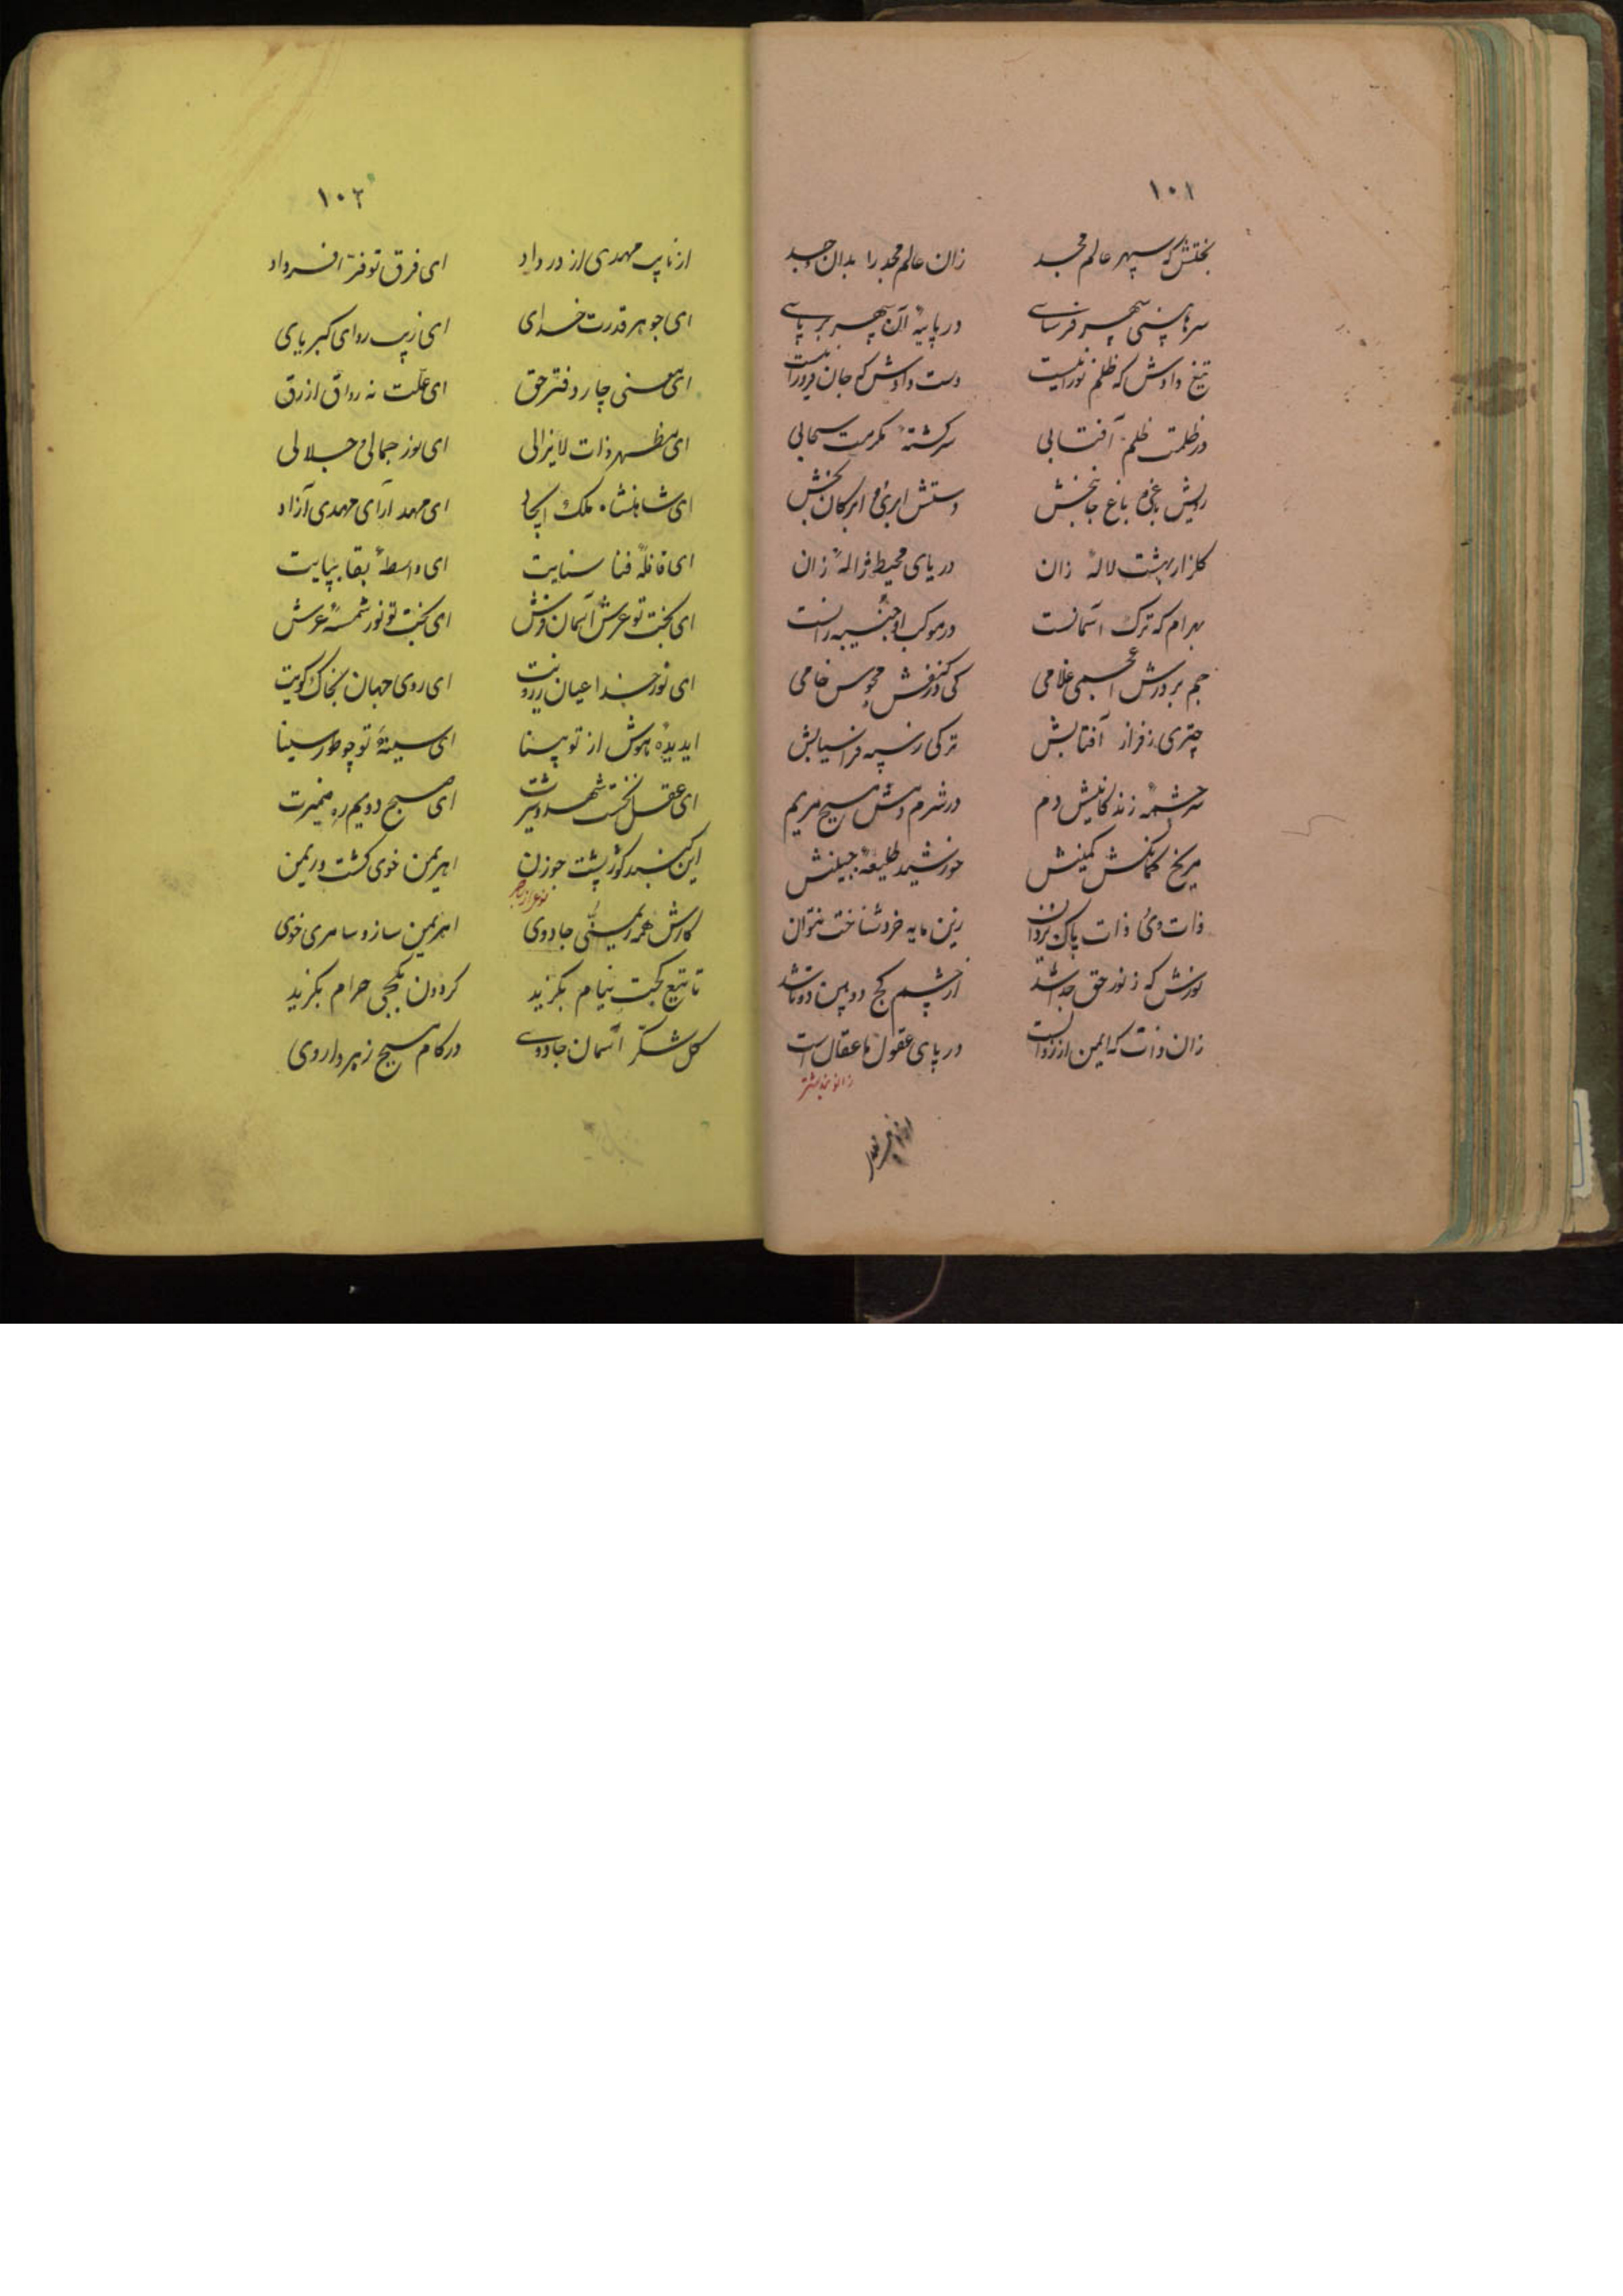 ۱۰۱
بختش که سپهر عالم مجد زان عالم مجد را بدان وجد
سرهاش پی سپهر فرسای در پایهٔ آن سپهر بر پای
تیغ دادش که ظلم نورانیست دست دادش که جان
در ظلمت ظلم آفتابی سرکشتهٔ مکرمت سحابی
باغ جانبخش دستش ابری و ابر کان بخش
کلزار بهشت لالهٔ زان دریای محیط ژالهٔ زان
بهرام که ترک آسمانست در موکب او جنیبه رانست
جم بر درش اعجمی غلامی کی در کنفش مجوس خامی
چتری ز فراز آفتابش ترکی ز سپه فراسیابش
سرچشمهٔ زندکانیش دم در شرم دمش مسیح مریم
مریخ کمانکش کمینش خورشید طلیعهٔ جبینش
ذات وی و ذات پاک یزدان زین مایه خرد شناخت نتوان
نورش که ز نور حق جدا شد از چشم کج دوبین دوتا شد
زان ذات که ایمن از زوالست در پای عقول ما عقال است
۱۰۲
از نایب مهدی از در داد ای فرق تو فرّ افسر داد
ای جوهر قدرت خدای ای زیب ردای کبریای
ای معنی چار دفتر حق ای علّت نه رواق ازرق
ای مظهر ذات لایزالی ای نور جمالی و جلالی
ای شاهنشاه ملک ایجاد ای مهد آرای مهدی آزاد
ای قافلهٔ فنا سنایت ای واسطهٔ بقا بپایت
ای تخت تو عرش آسمان فرش ای بخت تو نور شمسهٔ عرش
ای نور خدا عیان ز رویت ای روی جهان بخاک کویت
ای دیدهٔ هوش از تو بینا ای سینهٔ تو چو طور سینا
ای عقل نخست ای صبح دویم ره ضمیرت
این کنبد کوژپشت جوزن اهریمن خوی کشت و ریمن
کارش همه ریمنی و جادوی اهریمن ساز و سامری خوی
تا تیغ کجت نیام بکزید کردون کجی حرام بکزید
کل شکّر آسمان جادوی در کام مسیح زهر داروی